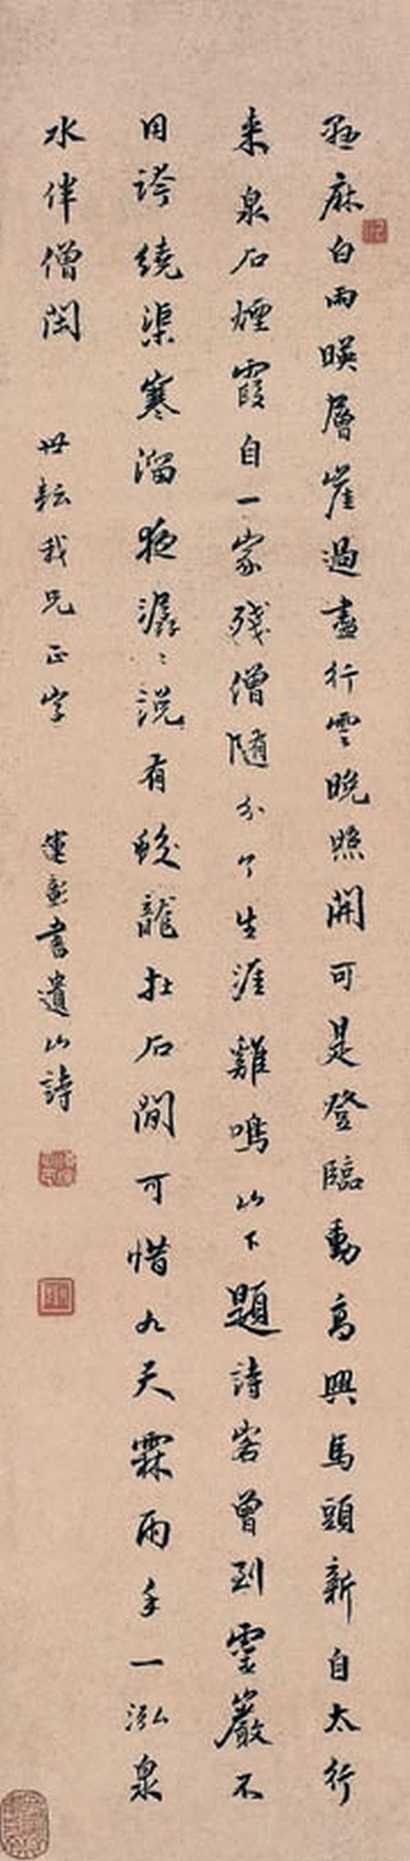 懸麻白雨暎層崖過盡行雲晚照開可是登臨動高興馬頭新自太行
来泉石煙霞自一家殘僧隨分了生涯雞鳴山下題詩客曾到雲巖不
用誇繞渠寒溜夜潺〻說有蛟龍在石間可惜九天霖雨手一泓泉
水伴僧閑
世耘我兄正字
運彰書遺山詩